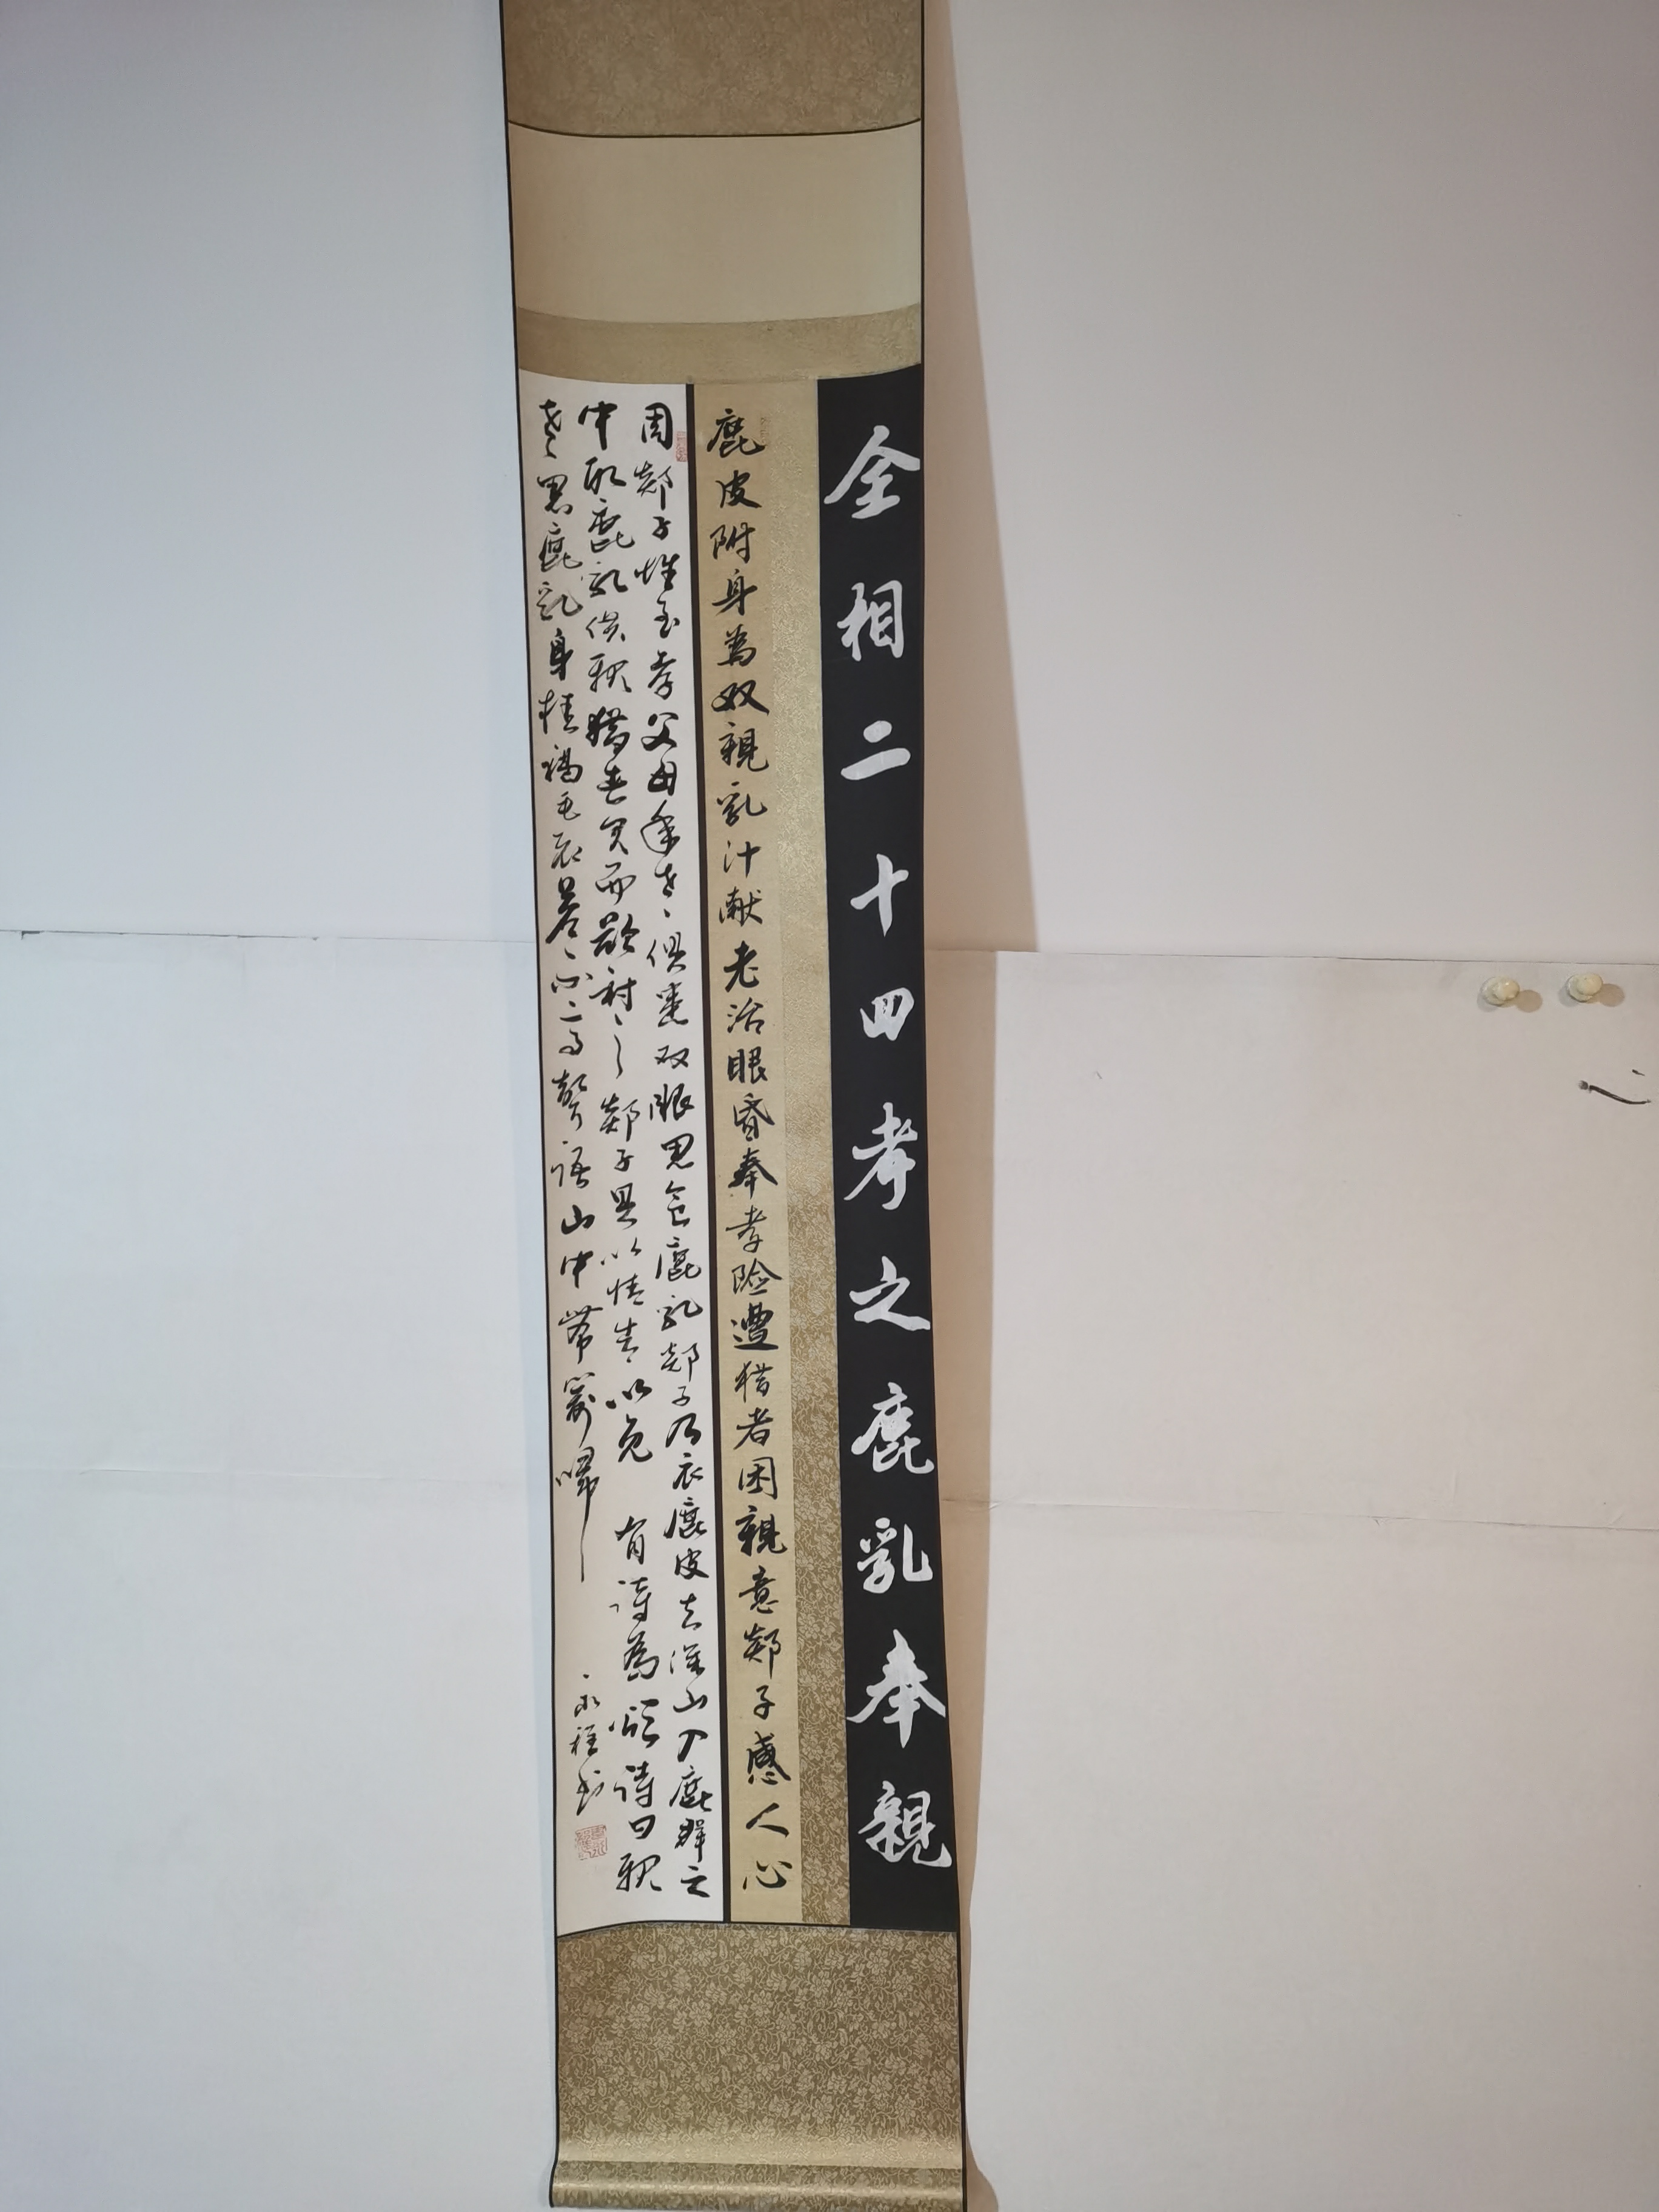 全相二十四孝之鹿乳奉親
鹿皮附身為奴親乳汁献老治眼昏奉孝险遭猎者困親意郯子感人心
周郯子性至孝父母年老俱患双眼思食鹿乳郯子乃衣鹿皮去深山入鹿群之
中取鹿乳供親猎者見而欲射之郯子具以情告以免 有詩為頌詩曰親
老思鹿乳身挂褐毛衣若不高聲語山中帶箭歸